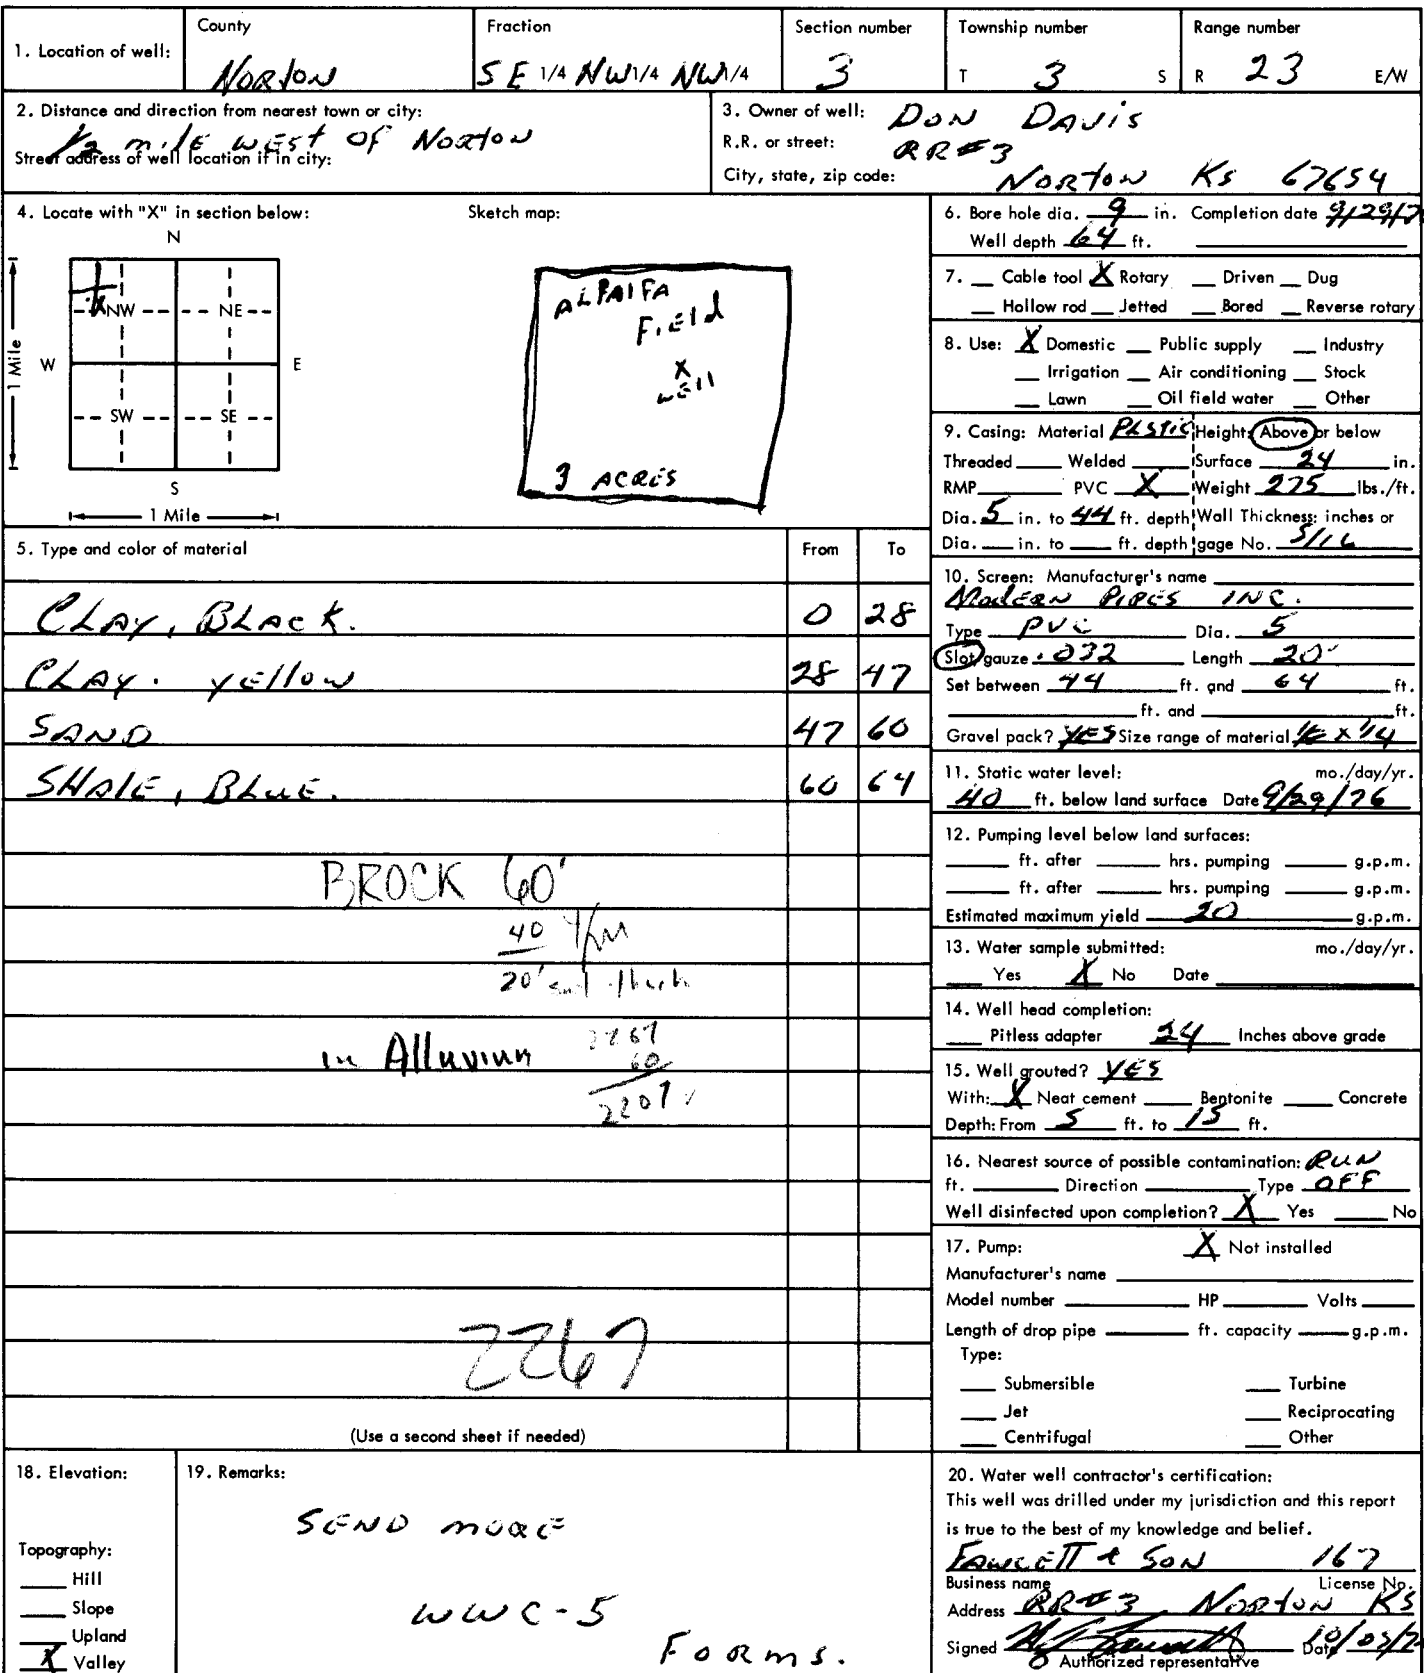 1. Location of well: County Norton Fraction SE 1/4 NW 1/4 NW 1/4 Section number 3 Township number T 3 S Range number R 23 E/W
2. Distance and direction from nearest town or city:
1/2 mile west of Norton
Street address of well location if in city:
3. Owner of well: DON DAVIS
R.R. or street: RR#3
City, state, zip code: NORTON KS 67654
4. Locate with "X" in section below:
N
NW NE
W E
SW SE
S
1 Mile
1 Mile
Sketch map:
ALFALFA
FIELD
X
WELL
3 ACRES
5. Type and color of material From To
CLAY, BLACK. 0 28
CLAY. YELLOW 28 47
SAND 47 60
SHALE, BLUE. 60 64
BROCK 60'
40
20'
in Alluvium
2267
60
2207
2267
(Use a second sheet if needed)
6. Bore hole dia. 9 in. Completion date 9/29/7
Well depth 64 ft.
7. Cable tool X Rotary Driven Dug
Hollow rod Jetted Bored Reverse rotary
8. Use: X Domestic Public supply Industry
Irrigation Air conditioning Stock
Lawn Oil field water Other
9. Casing: Material PLSTIC Height: Above or below
Threaded Welded Surface 24 in.
RMP PVC X Weight 275 lbs./ft.
Dia. 5 in. to 44 ft. depth Wall Thickness: inches or
Dia. in. to ft. depth gage No. 5/16
10. Screen: Manufacturer's name
MODERN PIPES INC.
Type PVC Dia. 5
Slot/gauze .032 Length 20'
Set between 44 ft. and 64 ft.
ft. and ft.
Gravel pack? YES Size range of material 1/8 x 1/4
11. Static water level: mo./day/yr.
40 ft. below land surface Date 9/29/76
12. Pumping level below land surfaces:
ft. after hrs. pumping g.p.m.
ft. after hrs. pumping g.p.m.
Estimated maximum yield 20 g.p.m.
13. Water sample submitted: mo./day/yr.
Yes X No Date
14. Well head completion:
Pitless adapter 24 Inches above grade
15. Well grouted? YES
With: X Neat cement Bentonite Concrete
Depth: From 5 ft. to 15 ft.
16. Nearest source of possible contamination: RUN
ft. Direction Type OFF
Well disinfected upon completion? X Yes No
17. Pump: X Not installed
Manufacturer's name
Model number HP Volts
Length of drop pipe ft. capacity g.p.m.
Type:
Submersible Turbine
Jet Reciprocating
Centrifugal Other
18. Elevation:
Topography:
Hill
Slope
Upland
X Valley
19. Remarks:
SEND MORE
WWC-5
FORMS.
20. Water well contractor's certification:
This well was drilled under my jurisdiction and this report
is true to the best of my knowledge and belief.
FAWCETT & SON 167
Business name License No.
Address RR#3 NORTON KS
Signed Date 10/05/7
Authorized representative